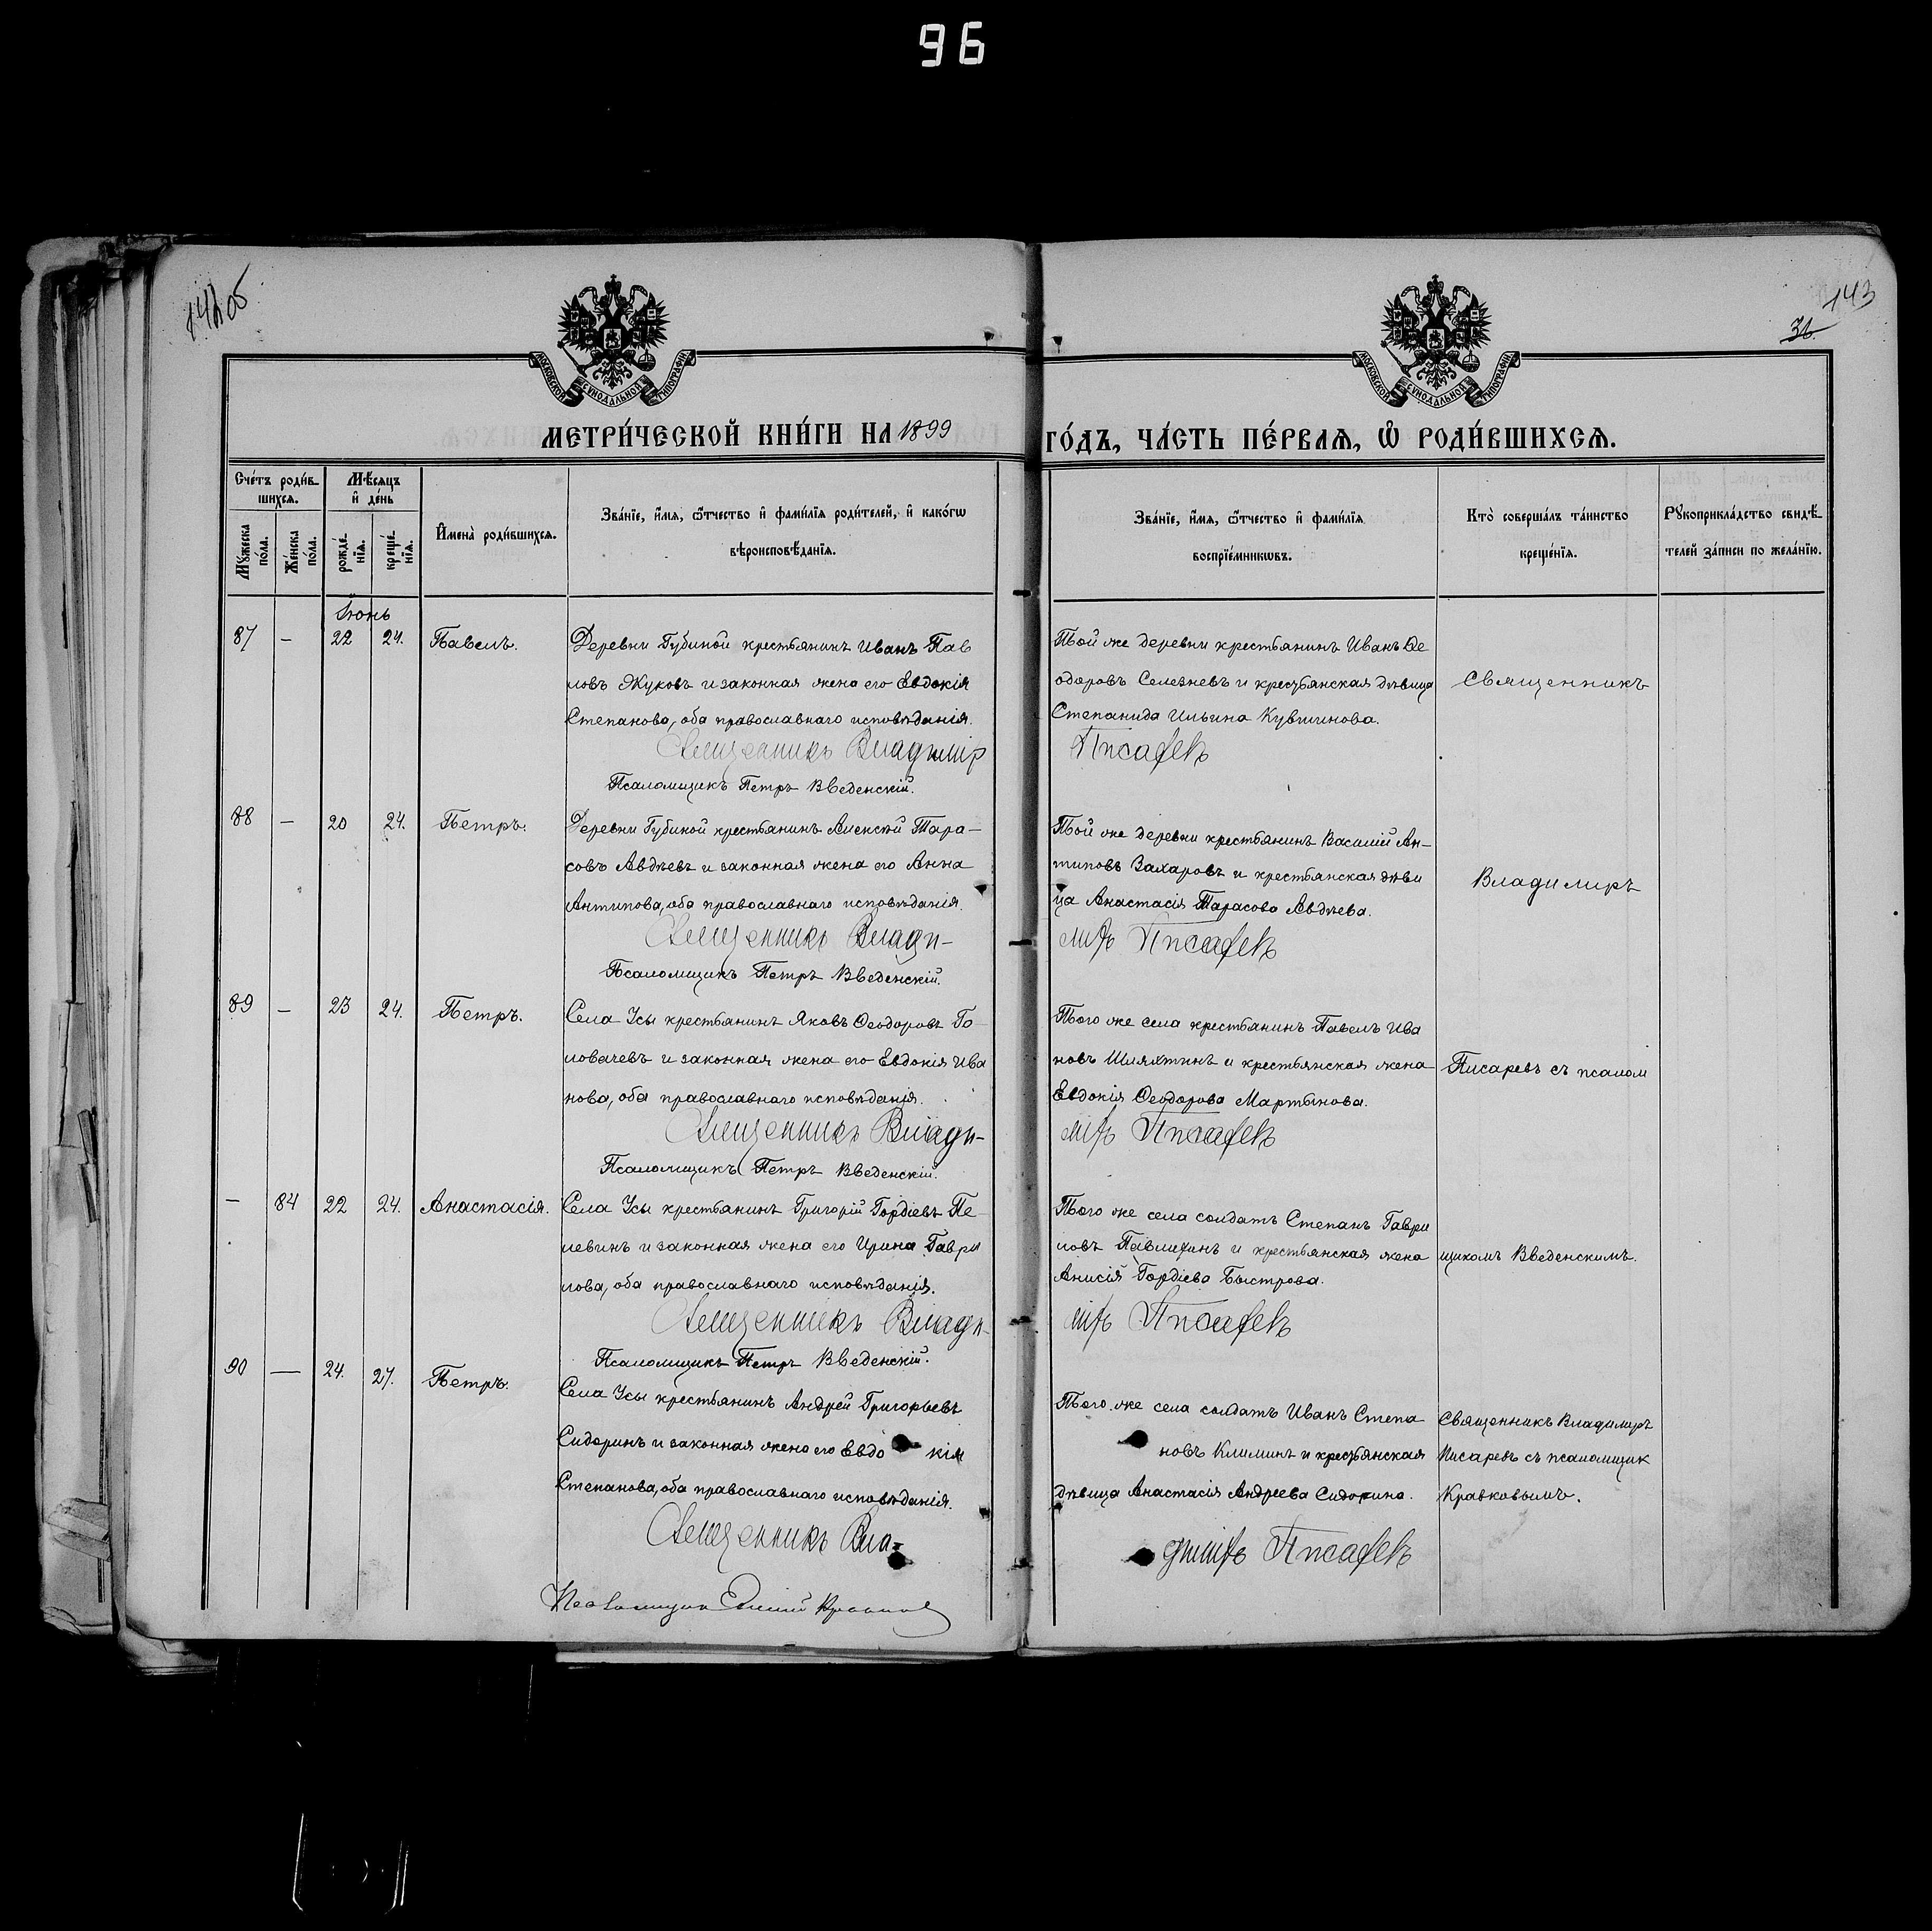 96
142 об
143
31.
МОСКОВСКОЙ СѴНОДАЛЬНОЙ ТИПОГРАФІИ
МОСКОВСКОЙ СѴНОДАЛЬНОЙ ТИПОГРАФІИ
МЕТРИ́ЧЕСКОЙ КНИ́ГИ НА 1899 ГО́ДЪ, ЧА́СТЬ ПЕ́РВАѦ, Ѡ҆ РОДИ́ВШИХСѦ.
Сче́тъ роди́в-
шихсѧ.
Мꙋ́жеска
по́ла.
Же́нска
по́ла.
Мѣ́сяцъ
и҆ де́нь
рожде́-
нїѧ.
креще́-
нїѧ.
И҆мена̀ роди́вшихсѧ.
Зва́нїе, и҆́мѧ, ѻ҆́тчество и҆ фами́лїѧ роди́телей, и҆ како́гѡ
вѣроисповѣ́данїѧ.
Зва́нїе, и҆́мѧ, ѻ҆́тчество и҆ фами́лїѧ
воспрїе́мникѡвъ.
Кто̀ соверша́лъ та́инство
креще́нїѧ.
Рꙋкоприкла́дство свидѣ́-
телей за́писи по жела́нїю.
Іюнь
87 – 22 24. Павелъ.
Деревни Губиной крестьянинъ Иванъ Пав
ловъ Жуковъ и законная жена его Евдокія
Степанова, оба православнаго исповѣданія.
Священникъ Владимір
Псаломщикъ Петръ Введенскій.
Той же деревни крестьянинъ Иванъ Ѳе
одоровъ Селезневъ и крестьянская дѣвица
Степанида Ильина Кувшинова.
Писаревъ
Священникъ
88 – 20 24. Петръ.
Деревни Губиной крестьянинъ Алексѣй Тара-
совъ Авдѣевъ и законная жена его Анна
Антипова, оба православнаго исповѣданія.
Священникъ Влади-
Псаломщикъ Петръ Введенскій.
Той же деревни крестьянинъ Василій Ан-
типовъ Захаровъ и крестьянская дѣви
ца Анастасія Тарасова Авдѣева.
миръ Писаревъ
Владимиръ
89 – 23 24. Петръ.
Села Усы крестьянинъ Яковъ Ѳеодоровъ Го-
ловачевъ и законная жена его Евдокія Ива
нова, оба православнаго исповѣданія.
Священникъ Влади-
Псаломщикъ Петръ Введенскій.
Того же села крестьянинъ Павелъ Ива
новъ Шляхтинъ и крестьянская жена
Евдокія Ѳеодорова Мартынова.
миръ Писаревъ
Писаревъ съ псалом
– 84 22 24. Анастасія.
Села Усы крестьянинъ Григорій Гордіевъ Пе-
левинъ и законная жена его Ирина Гаври
лова, оба православнаго исповѣданія.
Священникъ Влади-
Псаломщикъ Петръ Введенскій.
Того же села солдатъ Степанъ Гаври
ловъ Павлихинъ и крестьянская жена
Анисія Гордіева Быстрова.
миръ Писаревъ
щикомъ Введенскимъ.
90 — 24. 27. Петръ.
Села Усы крестьянинъ Андрей Григорьевъ
Сидоринъ и законная жена его Евдо кія
Степанова, оба православнаго исповѣданія.
Священникъ Вла-
Псаломщик Кравков
Того же села солдатъ Иванъ Степа
новъ Климинъ и крестьянская
дѣвица Анастасія Андреева Сидорина.
димиръ Писаревъ
Священникъ Владимиръ
Писаревъ съ псаломщик
Кравковымъ.